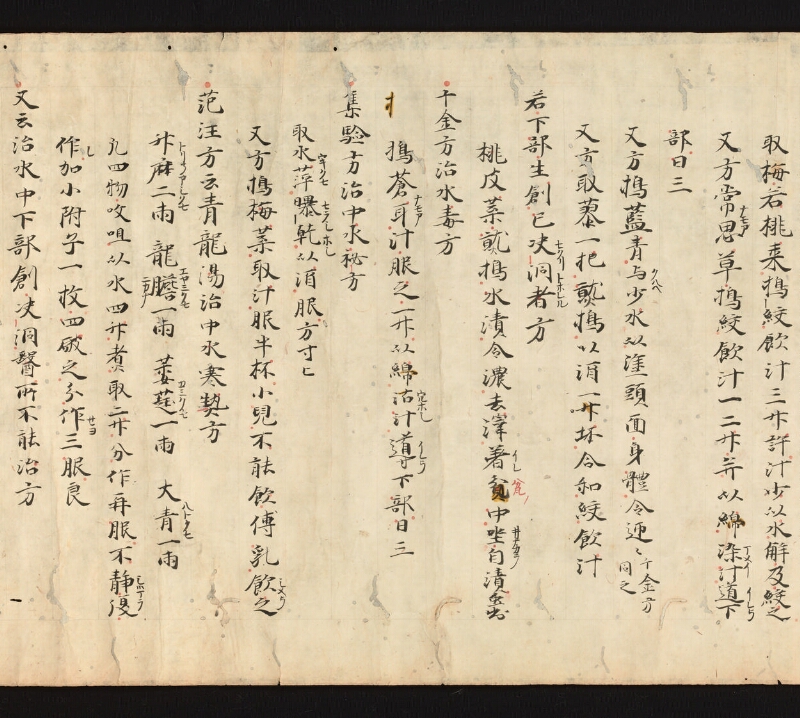 取梅若桃葉搗絞飲汁三升許汁少以水解及絞之
又方常思草搗絞飲汁一二升并以綿染汁導下
部日三
又方搗藍青与少水以塗頭面身體令遍〻千金方同之
又方取蓼一把熟搗以酒一升坏合和絞飲汁
若下部生創已决洞者方
桃皮葉熟搗水漬令濃去滓著盆中坐自漬
千金方治水毒方
搗蒼耳汁服之一升以綿沾汁導下部日三
集驗方治中水祕方
取水萍曝乾以酒服方寸匕
又方搗梅葉取汁服半杯小兒不能飲傅乳飲之
范汪方云青龍湯治中水寒熱方
升麻二兩 龍膽一兩 萎蕤一兩 大青一兩
凡四物㕮咀以水四升煮取二升分作再服不静復
作加小附子一枚四破之分作三服良
又云治水中下部創决洞醫所不能治方